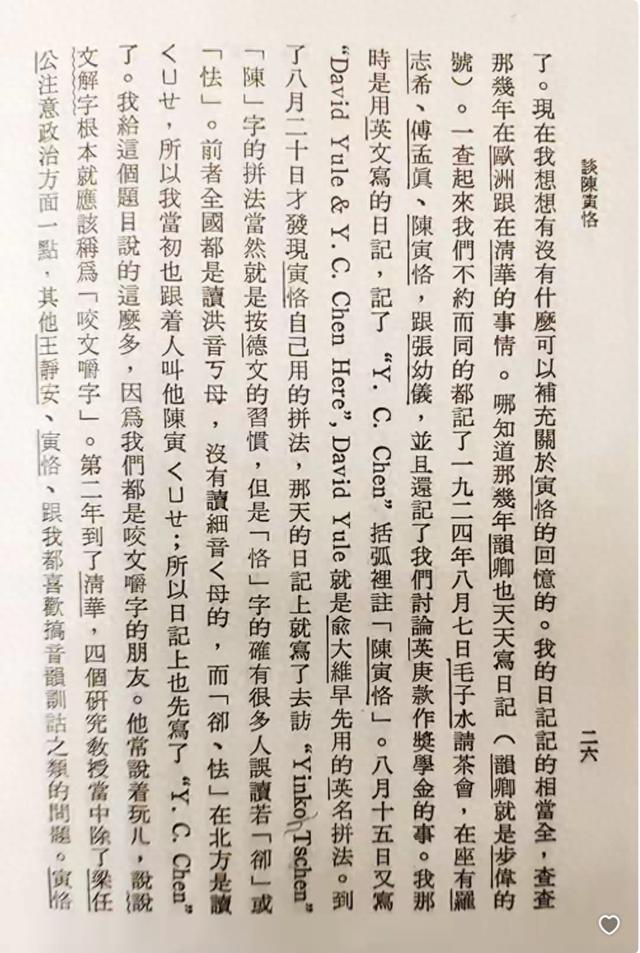 談陳寅恪
二六
了。現在我想想有沒有什麼可以補充關於寅恪的回憶的。我的日記記的相當全，查查
那幾年在歐洲跟在清華的事情。哪知道那幾年韻卿也天天寫日記（韻卿就是步偉的
號）。一查起來我們不約而同的都記了一九二四年八月七日毛子水請茶會，在座有羅
志希、傅孟眞、陳寅恪，跟張幼儀，並且還記了我們討論英庚款作獎學金的事。我那
時是用英文寫的日記，記了 “Y. C. Chen” 括弧裡註「陳寅恪」。八月十五日又寫
“David Yule & Y. C. Chen Here”, David Yule 就是兪大維早先用的英名拼法。到
了八月二十日才發現寅恪自己用的拼法，那天的日記上就寫了去訪 “Yinko Tschen”
「陳」字的拼法當然就是按德文的習慣，但是「恪」字的確有很多人誤讀若「卻」或
「怯」。前者全國都是讀洪音ㄎ母，沒有讀細音ㄑ母的，而「卻、怯」在北方是讀
ㄑㄩㄝ，所以我當初也跟着人叫他陳寅ㄑㄩㄝ；所以日記上也先寫了 “Y. C. Chen”
了。我給這個題目說的這麼多，因爲我們都是咬文嚼字的朋友。他常說着玩儿，說說
文解字根本就應該稱爲「咬文嚼字」。第二年到了清華，四個硏究敎授當中除了梁任
公注意政治方面一點，其他王靜安、寅恪、跟我都喜歡搞音韻訓詁之類的問題。寅恪